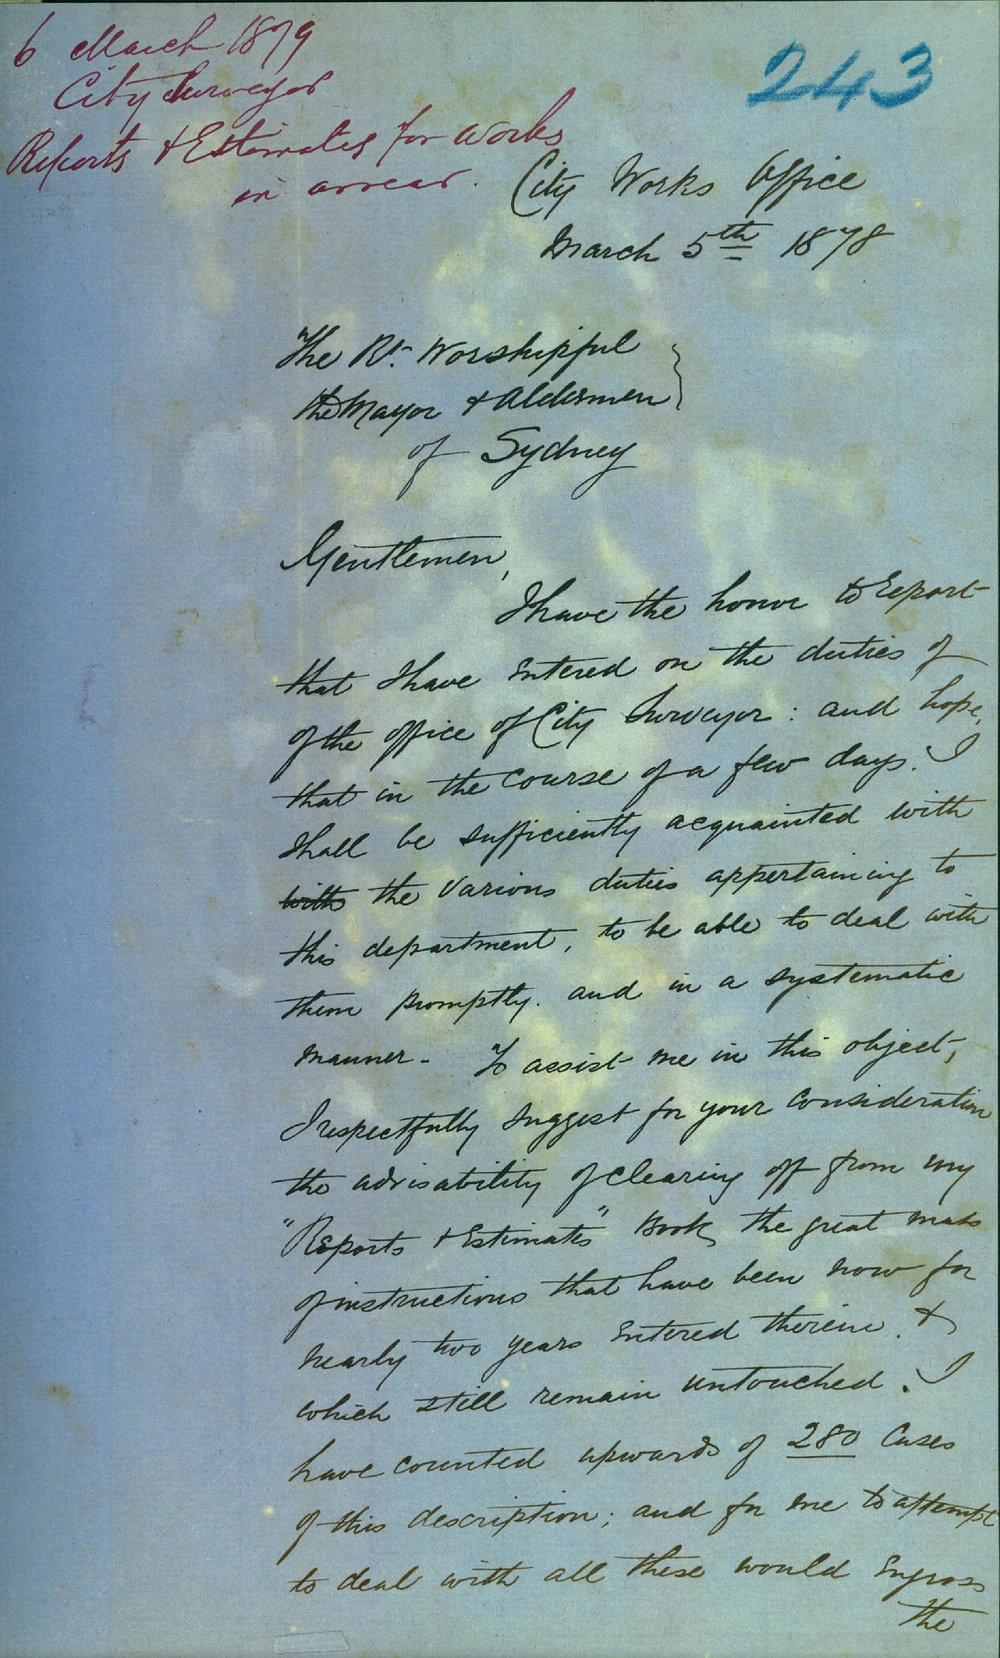 6 March 1879
City Surveyor
Reports & Estimates for works
in arrear.
243
City Works Office
March 5th 1878
The Rt. Worshipful
the Mayor & Aldermen
of Sydney
Gentlemen,
I have the honor to report
that I have entered on the duties of
of the office of City Surveyor: and hope,
that in the course of a few days. I
shall be sufficiently acquainted with
with the various duties appertaining to
this department, to be able to deal with
them promptly. and in a systematic
manner - To assist me in this object,
I respectfully suggest for your consideration
the advisability of clearing off from my
"Reports & Estimates" Book, the great mass
of instructions that have been now for
nearly two years entered therein. &
which still remain untouched. I
have counted upwards of 280 Cases
of this description; and for me to attempt
to deal with all these would engross
the